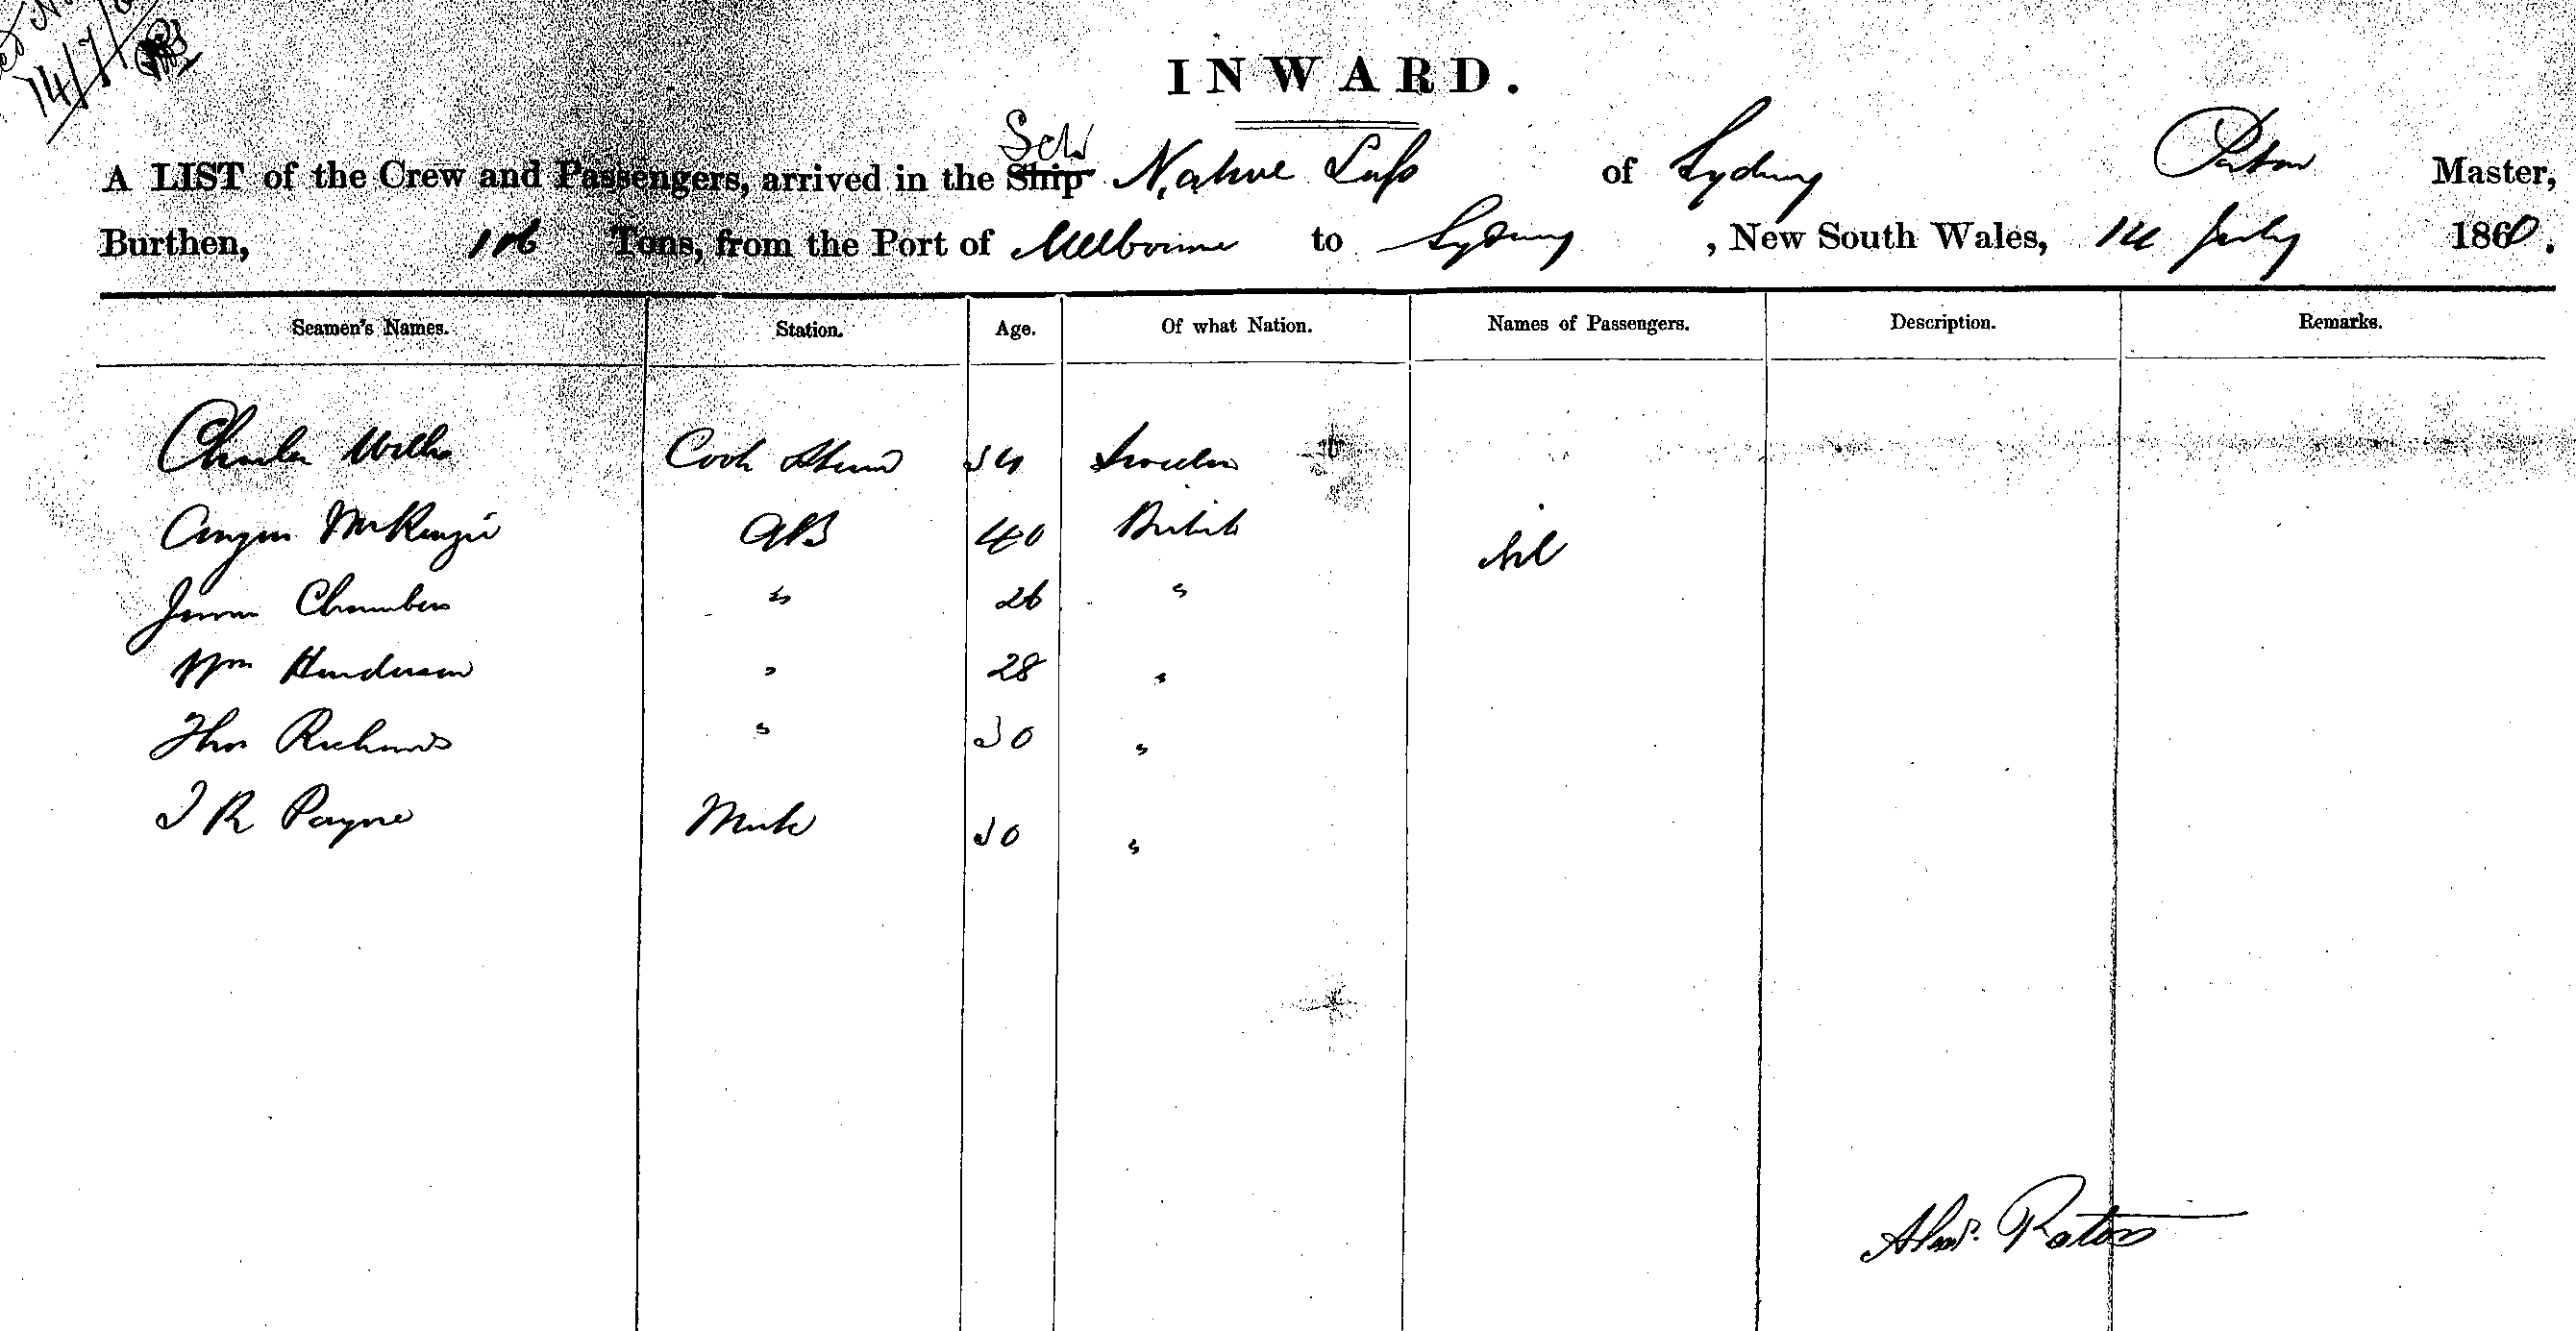 14/7/6
INWARD.
Sch
A LIST of the Crew and Passengers, arrived in the Ship Native Lass of Sydney Paton Master,
Burthen, 106 Tons, from the Port of Melbourne to Sydney , New South Wales, 14 July 1860.
Seamen's Names. Station. Age. Of what Nation. Names of Passengers. Description. Remarks.
Charles Cook 34 Sweden
Angus McKenzie AB 40 British Nil
James Chambers " 26 "
Wm Henderson " 28 "
Thos Richards " 30 "
J R Payne Mate 30 "
Alexr. Paton